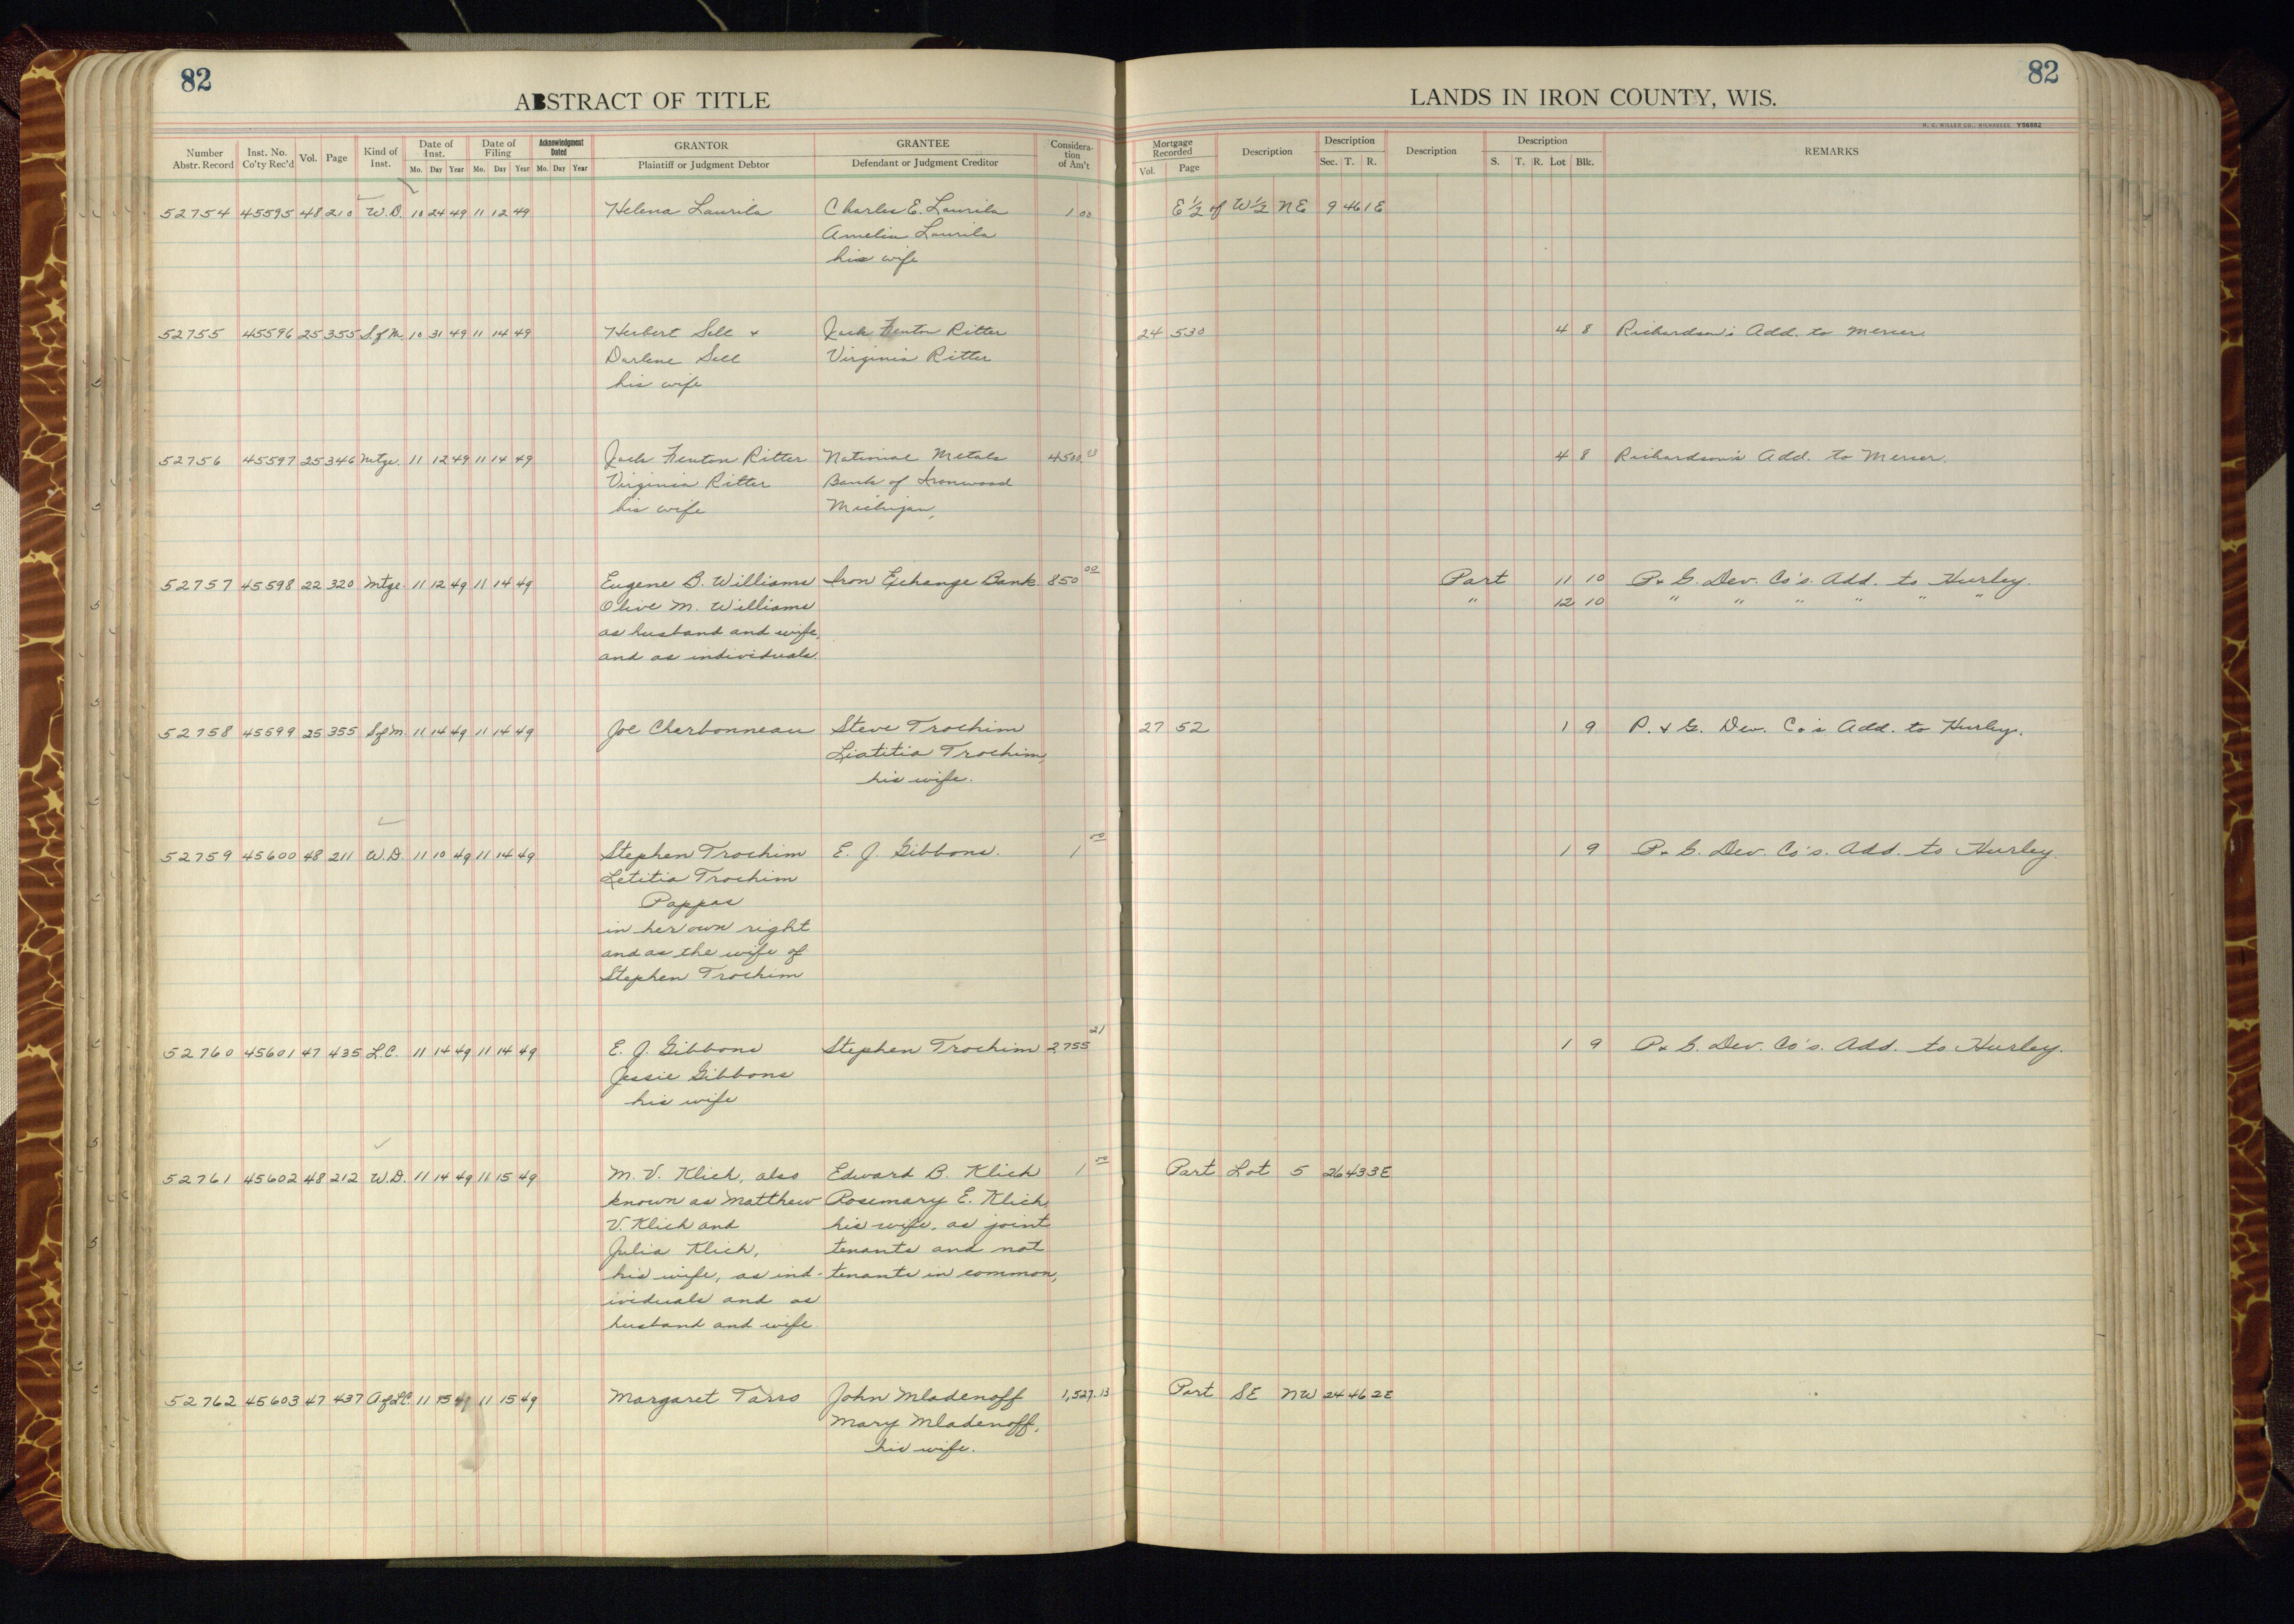 82
ABSTRACT OF TITLE
Number Abstr. Record Inst. No. Co'ty Rec'd Vol. Page Kind of Inst. Date of Inst. Mo. Day Year Date of Filing Mo. Day Year Acknowledgment Dated Mo. Day Year GRANTOR Plaintiff or Judgment Debtor GRANTEE Defendant or Judgment Creditor Consideration of Am't
52754 45595 48 210 W.D. 10 24 49 11 12 49 Helena Laurila Charles E. Laurila 1 00
Amelia Laurila
his wife
52755 45596 25 355 S of M 10 31 49 11 14 49 Herbert Sell + Jack Fenton Ritter
Darlene Sell Virginia Ritter
his wife
52756 45597 25 346 Mtge. 11 12 49 11 14 49 Jack Fenton Ritter National Metals 4500
Virginia Ritter Bank of Ironwood
his wife Michigan,
52757 45598 22 320 Mtge. 11 12 49 11 14 49 Eugene B. Williams Iron Exchange Bank 850 00
Olive M. Williams
as husband and wife,
and as individuals.
52758 45599 25 355 S of M 11 14 49 11 14 49 Joe Charbonneau Steve Trochim
Liatitia Trochim,
his wife.
52759 45600 48 211 W.D. 11 10 49 11 14 49 Stephen Trochim E. J. Gibbons. 1 00
Letitia Trochim
Pappas
in her own right
and as the wife of
Stephen Trochim
52760 45601 47 435 L.C. 11 14 49 11 14 49 E. J. Gibbons Stephen Trochim 2,755 21
Jessie Gibbons
his wife
52761 45602 48 212 W.D. 11 14 49 11 15 49 M. V. Klich, also Edward B. Klich 1 00
known as Matthew Rosemary E. Klich
V. Klich and his wife, as joint
Julia Klich, tenants and not
his wife, as ind- tenants in common,
ividuals and as
husband and wife
52762 45603 47 437 A of LC. 11 15 49 11 15 49 Margaret Tarro John Mladenoff 1,527.13
Mary Mladenoff,
his wife.
82
LANDS IN IRON COUNTY, WIS.
H. C. MILLER CO., MILWAUKEE Y56682
Mortgage Recorded Vol. Page Description Description Sec. T. R. Description Description S. T. R. Lot Blk. REMARKS
E ½ of W ½ NE 9 46 1E
24 530 4 8 Richardson's Add. to Mercer.
4 8 Richardson's Add. to Mercer.
Part 11 10 P. & G. Dev. Co's. Add. to Hurley.
" 12 10 " " " " " "
27 52 1 9 P. & G. Dev. Co's Add. to Hurley.
1 9 P. & G. Dev. Co's. Add. to Hurley.
1 9 P. & G. Dev. Co's. Add. to Hurley.
Part Lot 5 26 43 3E
Part SE NW 24 46 2E